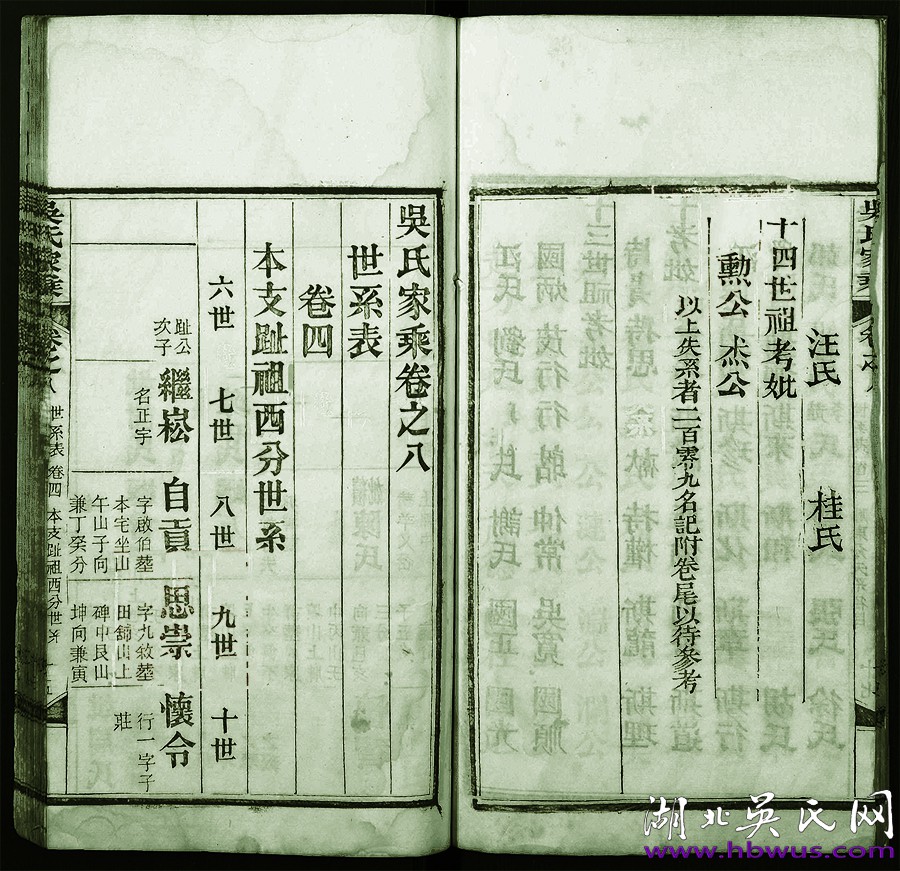 吳氏家乘
汪氏 桂氏
十四世祖考妣
勳公 杰公
以上失系者二百零九名記附卷尾以待參考
吳氏家乘卷之八
世系表
卷四
本支趾祖西分世系
六世 七世 八世 九世 十世
趾公
次子
繼崧
名正宇
自貢
字啟伯塟
本宅坐山
午山子向
兼丁癸分
思崇
字九敘塟
田舖山上
碑中艮山
坤向兼寅
懷令
行一字子
莊
吳氏家乘 卷之八 世系表 卷四 本支趾祖西分世系
湖北吳氏网
www.hbwus.com